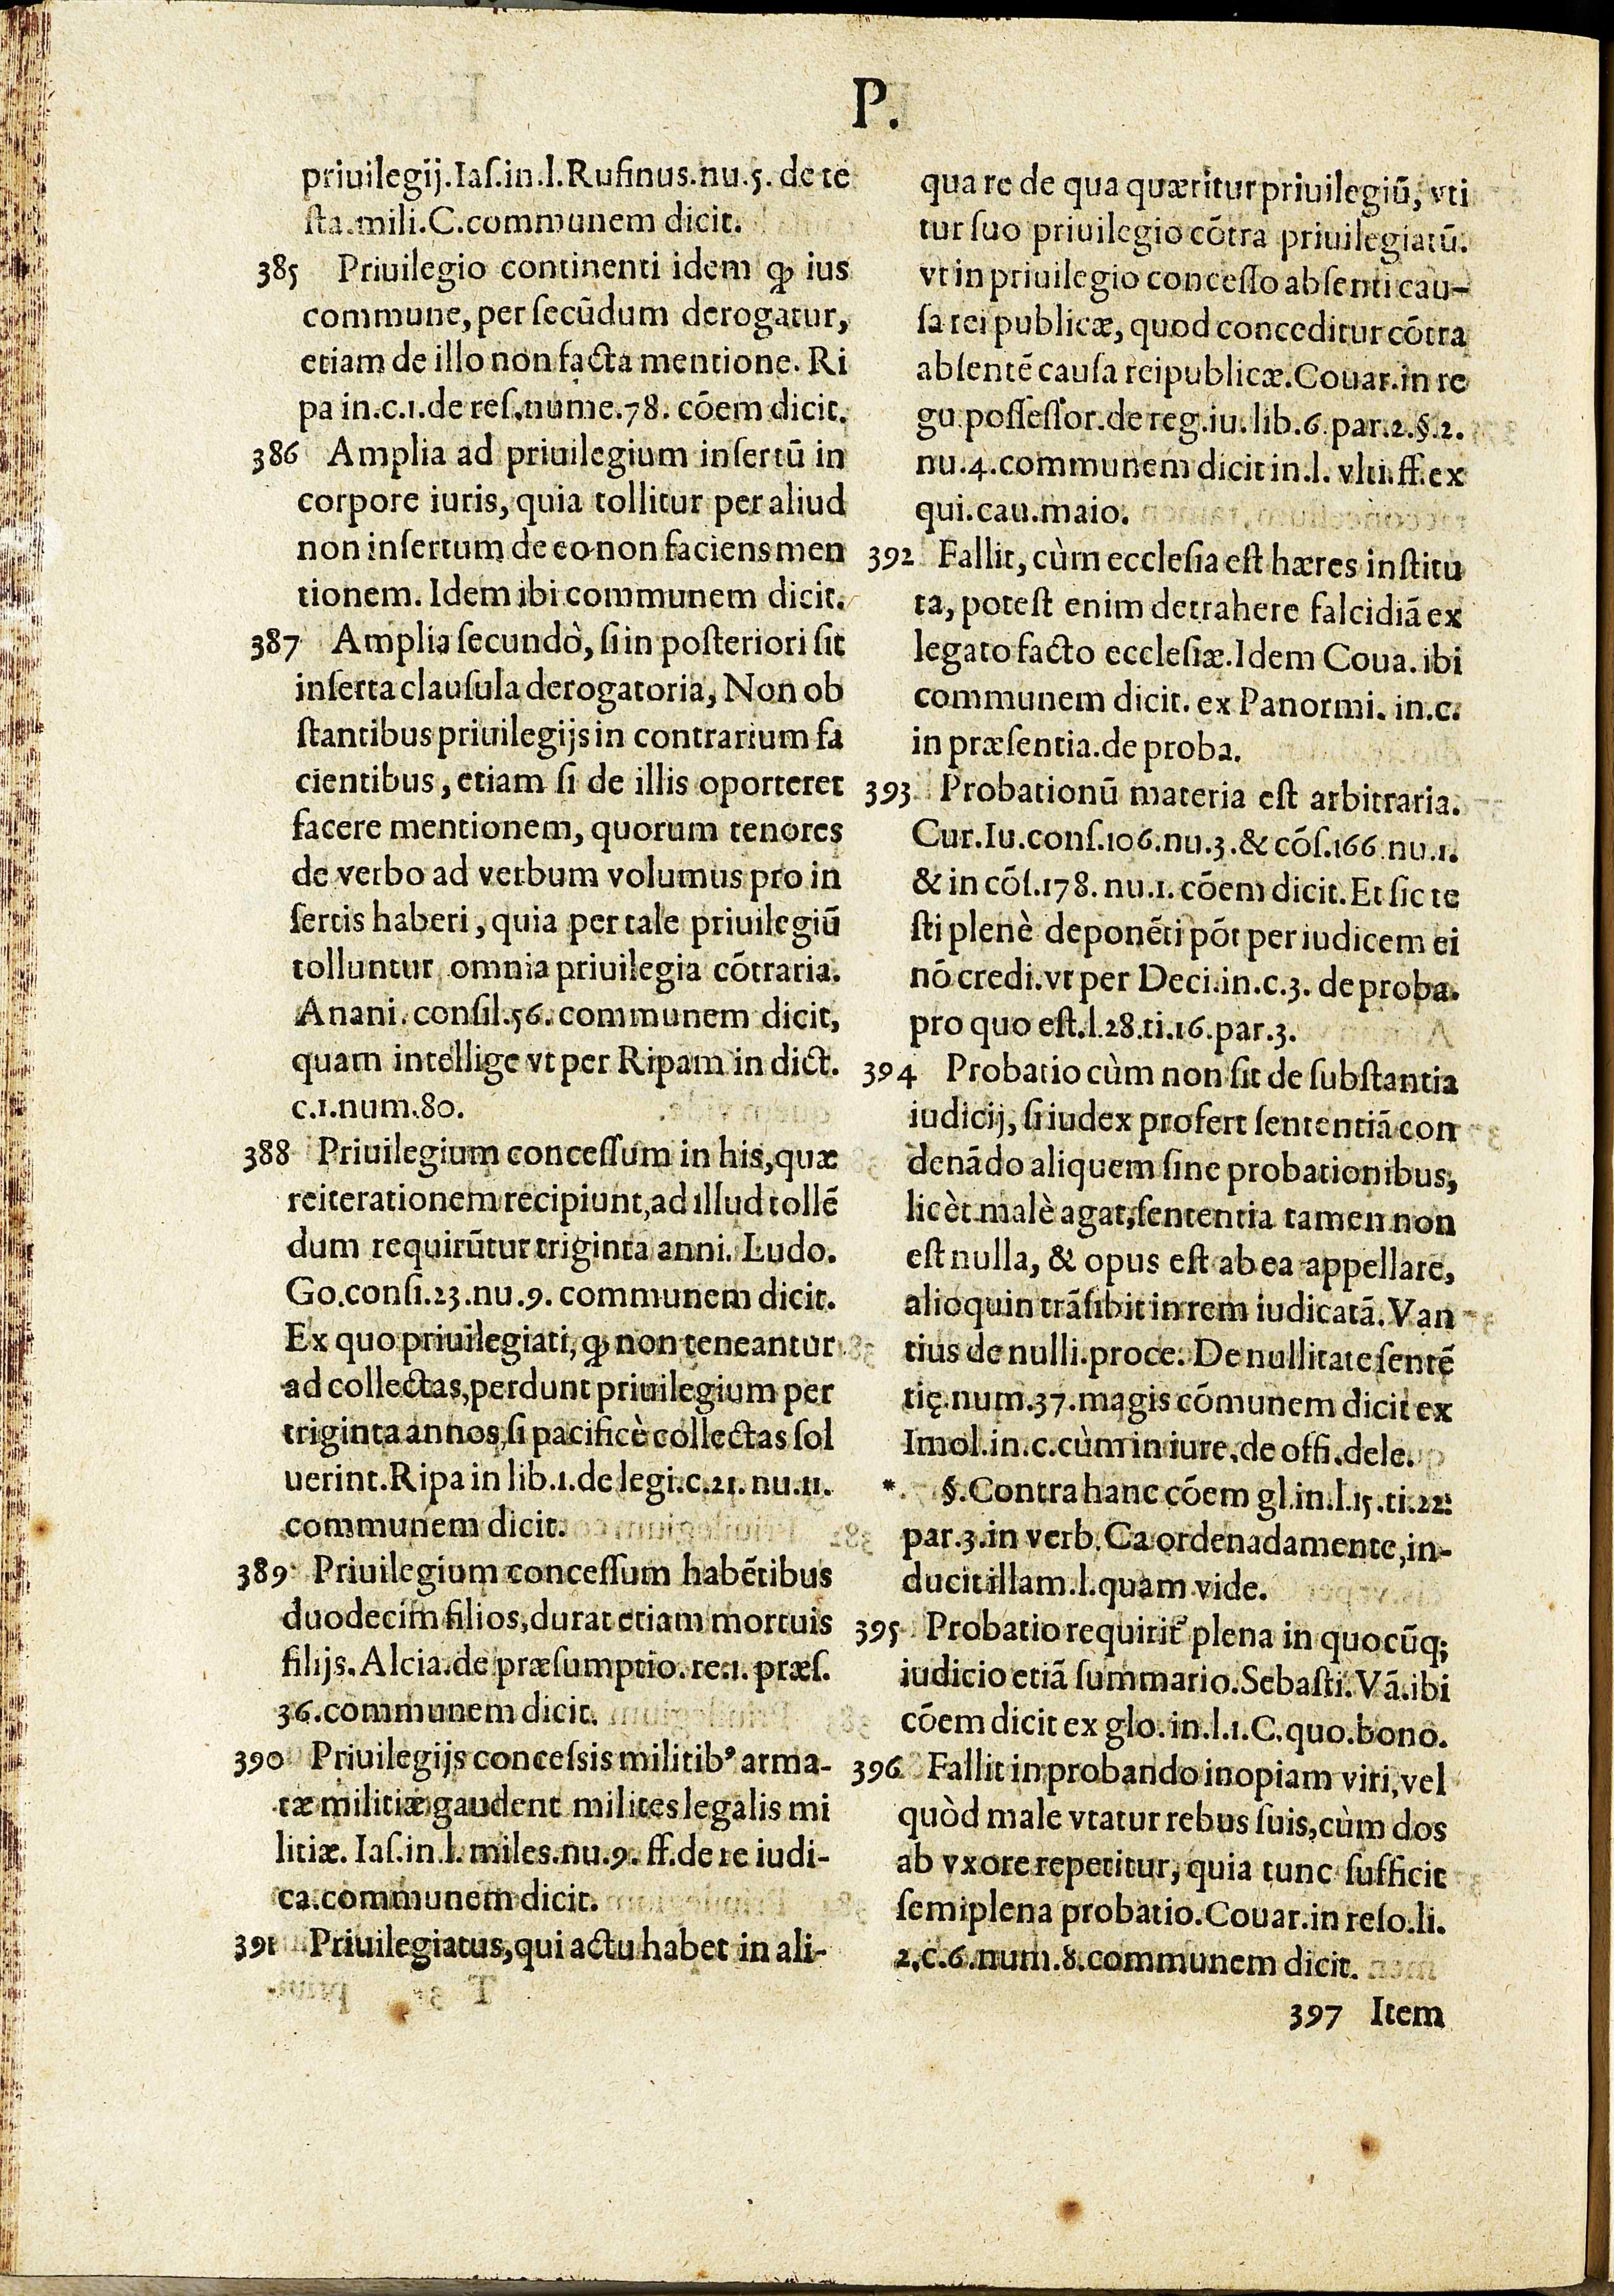 P.
priuilegij.Iaſ.in.l.Rufinus.nu.5. de te
ſta.mili.C.communem dicit.
385 Priuilegio continenti idem ꝙ ius
commune, per ſecũdum derogatur,
etiam de illo non facta mentione. Ri
pa in.c.1.de reſ.nume.78. cõem dicit.
386 Amplia ad priuilegium inſertũ in
corpore iuris, quia tollitur per aliud
non inſertum de eo non faciens men
tionem. Idem ibi communem dicit.
387 Amplia ſecundò, ſi in poſteriori ſit
inſerta clauſula derogatoria, Non ob
ſtantibus priuilegijs in contrarium fa
cientibus, etiam ſi de illis oporteret
facere mentionem, quorum tenores
de verbo ad verbum volumus pro in
ſertis haberi, quia per tale priuilegiũ
tolluntur omnia priuilegia cõtraria.
Anani. conſil.56. communem dicit,
quam intellige vt per Ripam in dict.
c.1.num.80.
388 Priuilegium conceſſum in his, quæ
reiterationem recipiunt, ad illud tollẽ
dum requirũtur triginta anni. Ludo.
Go.conſi.23.nu.9. communem dicit.
Ex quo priuilegiati, ꝙ non teneantur
ad collectas, perdunt priuilegium per
triginta annos, ſi pacificè collectas ſol
uerint. Ripa in lib.1.de legi.c.21. nu.11.
communem dicit.
389 Priuilegium conceſſum habẽtibus
duodecim filios, durat etiam mortuis
filijs. Alcia.de præſumptio. re.1. præſ.
36.communem dicit.
390 Priuilegijs conceſsis militibꝰ arma-
tæ militiæ gaudent milites legalis mi
litiæ. Iaſ.in.l. miles.nu.9. ff.de re iudi-
ca.communem dicit.
391 Priuilegiatus, qui actu habet in ali-
qua re de qua quæritur priuilegiũ, vti
tur ſuo priuilegio cõtra priuilegiatũ.
vt in priuilegio conceſſo abſenti cau-
ſa rei publicæ, quod conceditur cõtra
abſentẽ cauſa reipublicæ. Couar.in re
gu.poſſeſſor.de reg.iu. lib.6.par.2.§.2.
nu.4.communem dicit in.l. vlti.ff.ex
qui.cau.maio.
392 Fallit, cùm eccleſia eſt hæres inſtitu
ta, poteſt enim detrahere falcidiã ex
legato facto eccleſiæ.Idem Coua. ibi
communem dicit. ex Panormi. in.c.
in præſentia.de proba.
393 Probationũ materia eſt arbitraria.
Cur.Iu.conſ.106.nu.3.& cõſ.166.nu.1.
& in cõſ.178. nu.1. cõem dicit. Et ſic te
ſti plenè deponẽti põt per iudicem ei
nõ credi.vt per Deci.in.c.3. de proba.
pro quo eſt.l.28.ti.16.par.3.
394 Probatio cùm non ſit de ſubſtantia
iudicij, ſi iudex profert ſententiã con
denãdo aliquem ſine probationibus,
licèt malè agat, ſententia tamen non
eſt nulla, & opus eſt ab ea appellare,
alioquin trãſibit in rem iudicatã. Van
tius de nulli.proce. De nullitate ſentẽ
tię.num.37.magis cõmunem dicit ex
Imol.in.c.cùm in iure.de offi.dele.
* §.Contra hanc cõem gl.in.l.15.ti.22.
par.3.in verb. Ca ordenadamente, in-
ducit illam.l.quam vide.
395 Probatio requiritᷣ plena in quocũq;
iudicio etiã ſummario. Sebaſti. Vã.ibi
cõem dicit ex glo. in.l.1.C.quo.bono.
396 Fallit in probando inopiam viri, vel
quòd male vtatur rebus ſuis, cùm dos
ab vxore repetitur, quia tunc ſufficit
ſemiplena probatio. Couar.in reſo.li.
2.c.6.num.8.communem dicit.
397 Item